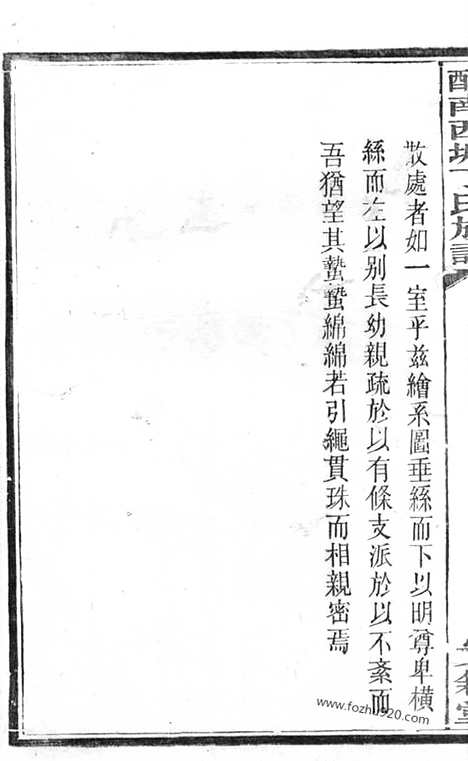 散處者如一室乎茲繪系圖垂絲而下以明尊卑橫
絲而左以别長幼親疏於以有條支派於以不紊而
吾猶望其蟄蟄綿綿若引繩貫珠而相親密焉
www.fozhu920.com